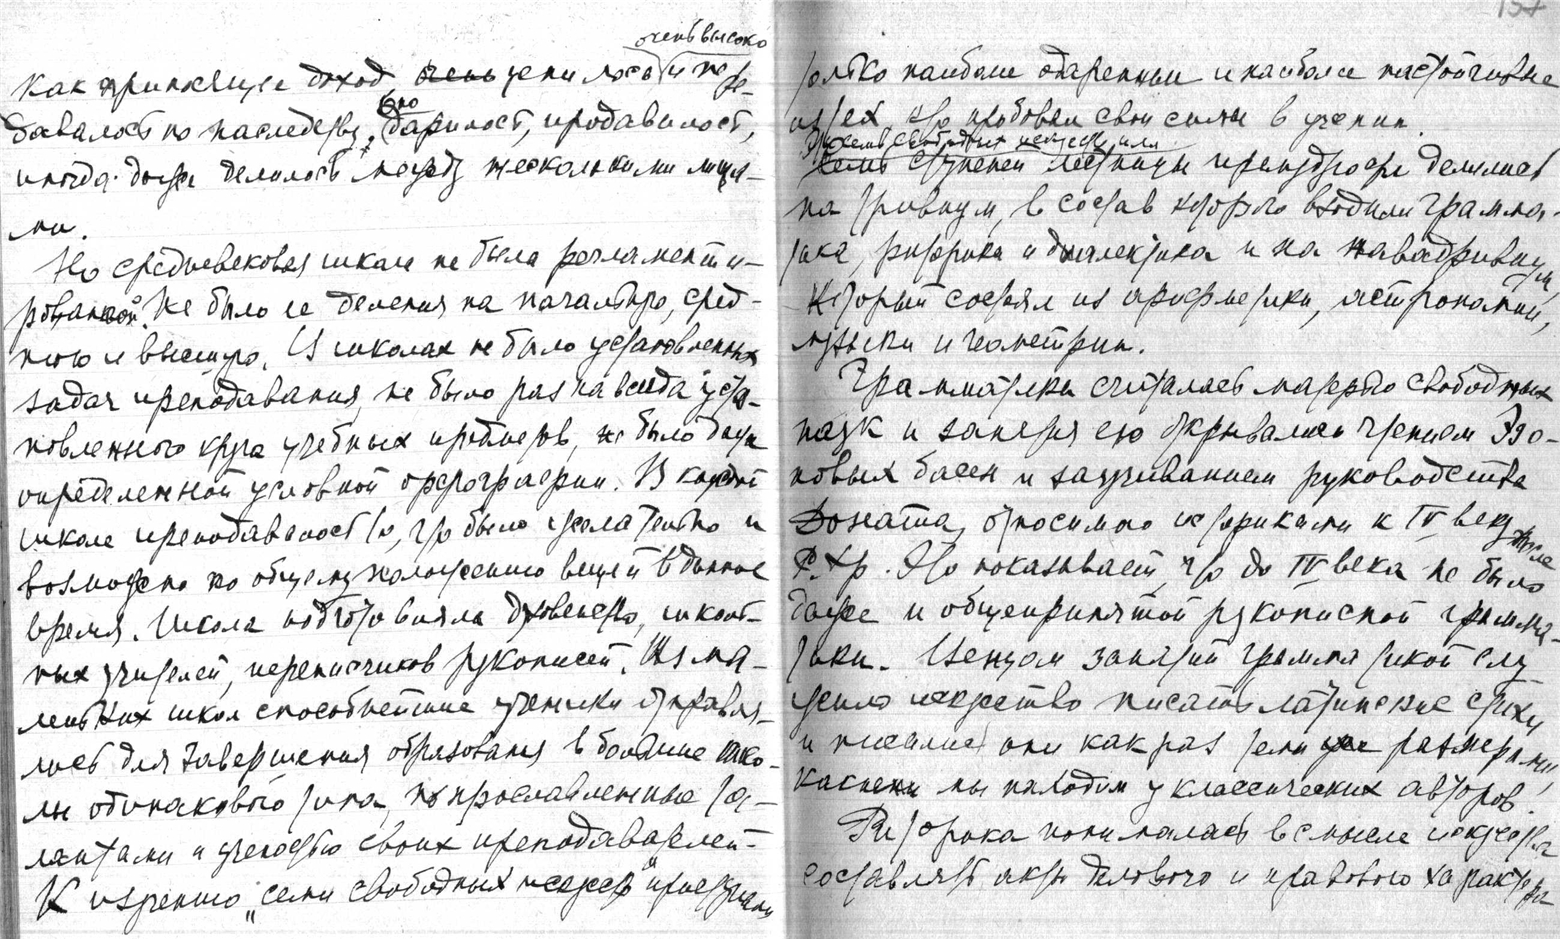 очень высоко
как приносящее доход очень ценилось и пере-
давалось по наследству, оно дарилось, продавалось,
иногда даже делилось между несколькими лица-
ми.
Но средневековая школа не была регламенти-
рованной. Не было ее деления на начальную, сред-
нюю и высшую. В школах не было установленных
задач преподавания, не было раз навсегда уста-
новленного круга учебных предметов, не было даже
определенной условной орфографии. В каждой
школе преподавалось то, что было желательно и
возможно по общему положению вещей в данное
время. Школа подготовляла духовенство, школь-
ных учителей, переписчиков рукописей. Из ма-
леньких школ способнейшие ученики отправля-
лись для завершения образования в большие шко-
лы одинакового типа, но прославленные та-
лантами и ученостью своих преподавателей.
К изучению "семи свободных искусств" приступали
157
только наиболее одаренные и наиболее настойчивые
из тех, кто пробовал свои силы в учении.
Эти семь свободных искусств или
семь ступеней лестницы премудрости делились
на тривиум, в состав которого входили грамма-
тика, риторика и диалектика и на квадривиум,
который состоял из арифметики, астрономии,
музыки и геометрии.
Грамматика считалась матерью свободных
наук и занятия ею открывались чтением Эзо-
повых басен и заучиванием руководства
Доната, относимого историками к IV веку после
Р.Хр. Это показывает, что до IV века не было
даже и общепринятой рукописной грамма-
тики. Венцом занятий грамматикой слу
жило искусство писать латинские стихи
и писались они как раз теми же размерами,
какие мы находим у классических авторов.
Риторика понималась в смысле искусства
составлять акты делового и правового характера